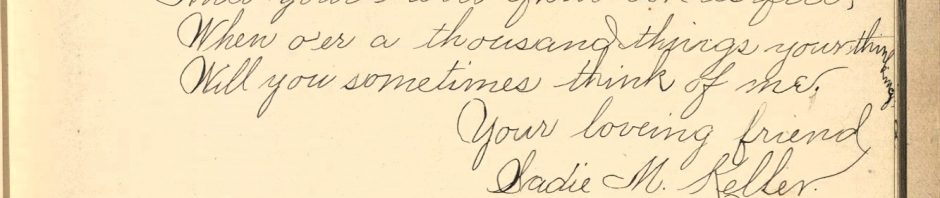 When o'er a thousand things your thinking
Will you sometimes think of me.
Your loveing friend
Sadie M. Keller.